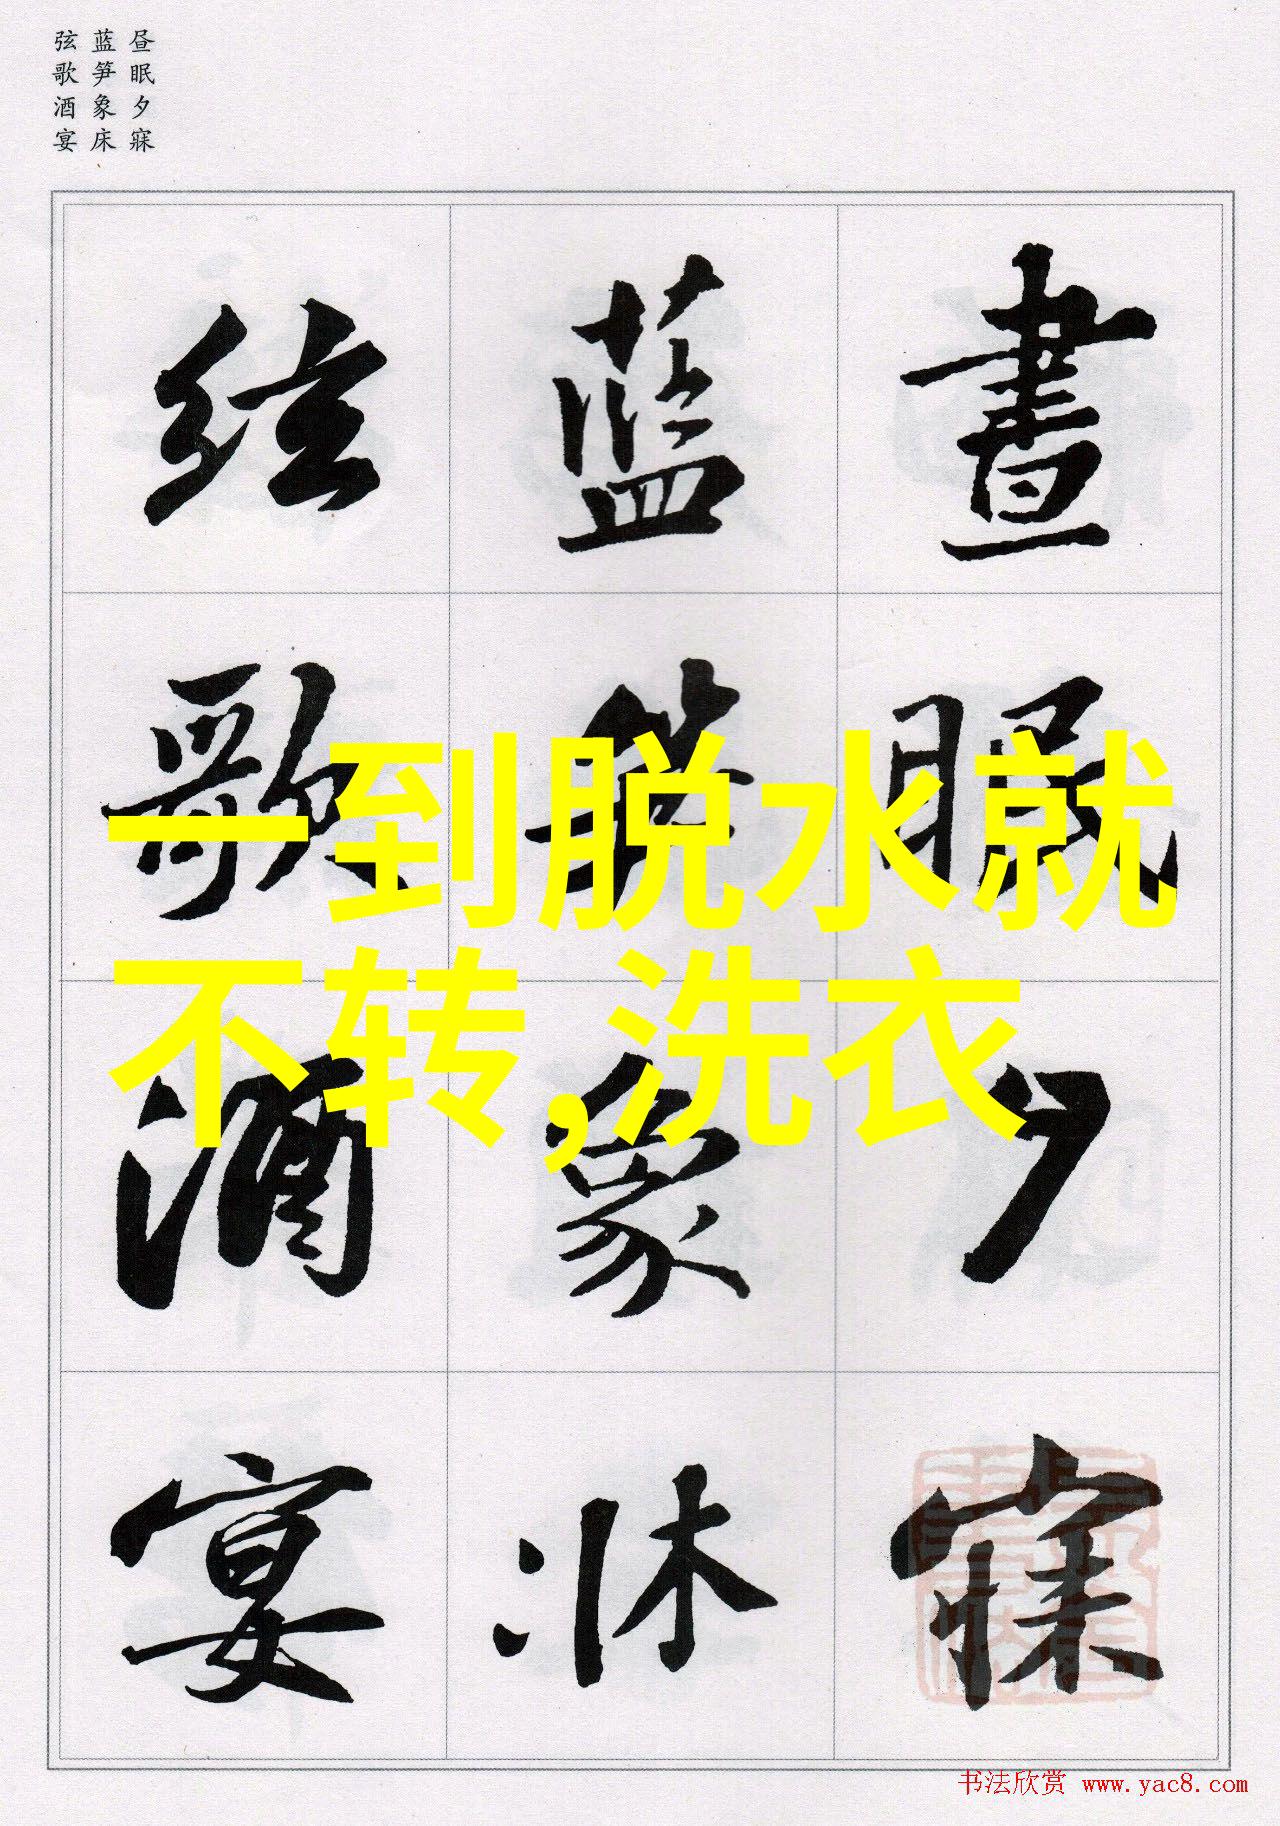 昼眠夕寐
蓝笋象床
弦歌酒宴
晝眠夕寐
蓝笋象床
弦歌酒宴
一到脱水就
不转,洗衣
书法欣赏 www.yac8.com